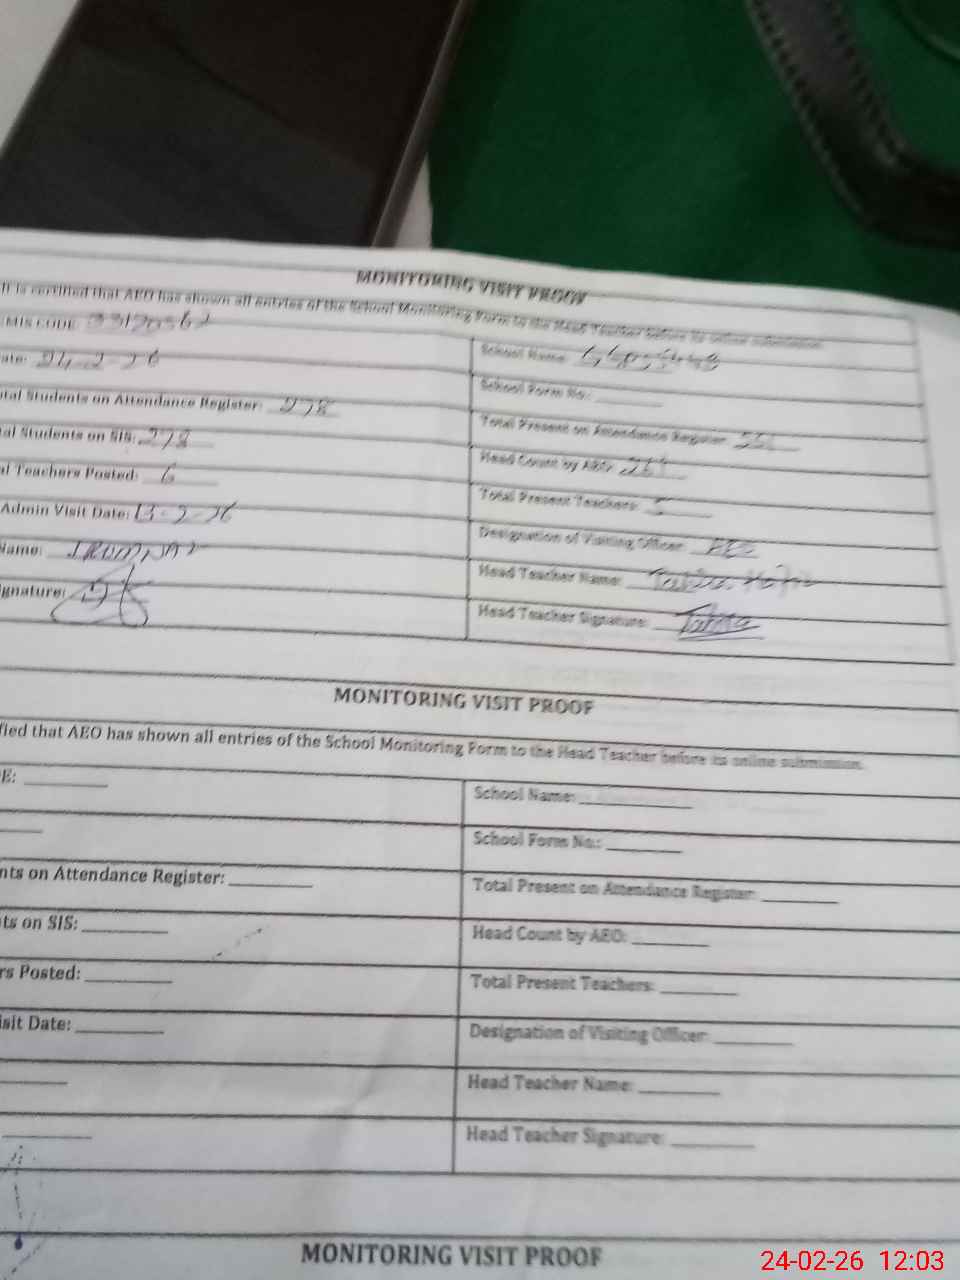 MONITORING VISIT PROOF
It is certified that AEO has shown all entries of the School Monitoring Form to the Head Teacher before its online submission.
EMIS CODE:
School Name:
ate: 24-2-26
School Form No.:
otal Students on Attendance Register: 278
Total Present on Attendance Register:
al Students on SIS: 278
Head Count by AEO:
al Teachers Posted: 6
Total Present Teachers: 5
Admin Visit Date: 13-2-26
Designation of Visiting Officer: AEO
Name:
Head Teacher Name:
gnature:
Head Teacher Signature:
MONITORING VISIT PROOF
fied that AEO has shown all entries of the School Monitoring Form to the Head Teacher before its online submission.
E:
School Name:
School Form No.:
nts on Attendance Register:
Total Present on Attendance Register:
ts on SIS:
Head Count by AEO:
rs Posted:
Total Present Teachers:
isit Date:
Designation of Visiting Officer:
Head Teacher Name:
Head Teacher Signature:
MONITORING VISIT PROOF
24-02-26 12:03